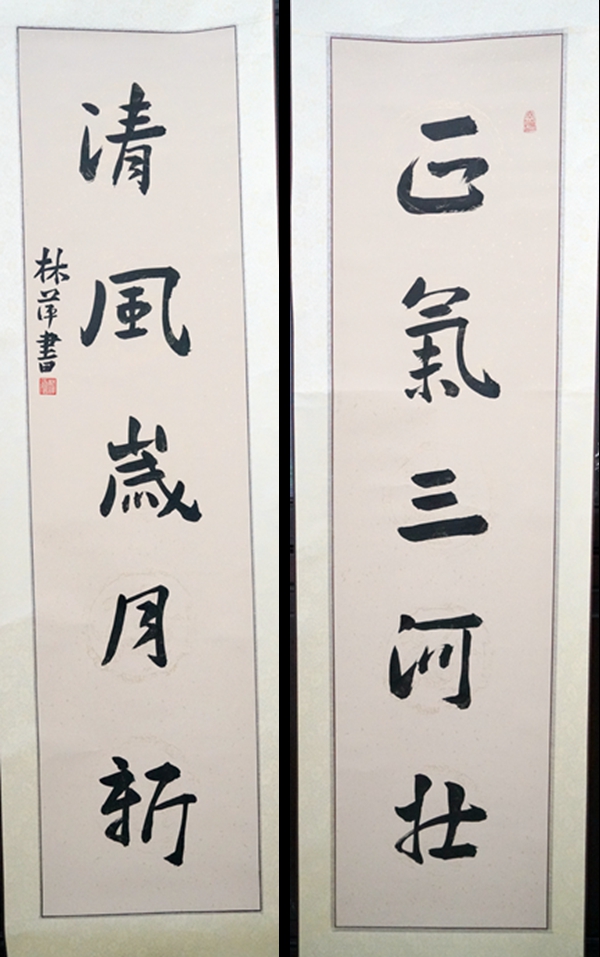 正氣三河壯
清風歲月新
林萍書